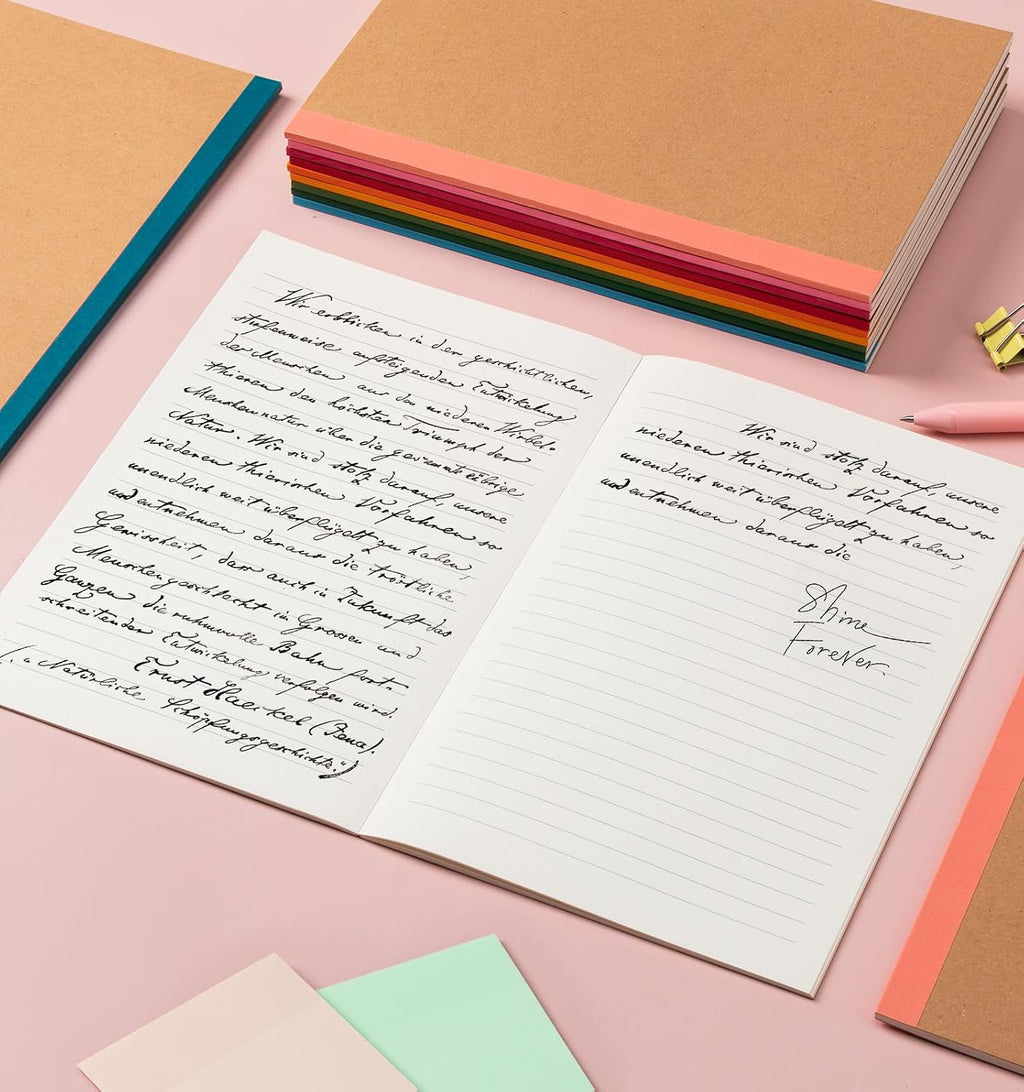 Wir erblicken in der geschichtlichen,
stufenweise aufsteigenden Entwickelung
der Menschen aus den niederen Wirbel-
thieren den höchsten Triumph der
Menschennatur über die gesammte übrige
Natur. Wir sind stolz darauf, unsere
niederen thierischen Vorfahren so
unendlich weit überflügelt zu haben,
und entnehmen daraus die tröstliche
Gewissheit, dass auch in Zukunft das
Menschengeschlecht im Grossen und
Ganzen die ruhmvolle Bahn fort-
schreitender Entwickelung verfolgen wird.
Ernst Haeckel (Jena).
Natürliche Schöpfungsgeschichte.")
Wir sind stolz darauf, unsere
niederen thierischen Vorfahren so
unendlich weit überflügelt zu haben,
und entnehmen daraus die
Shine
Forever.